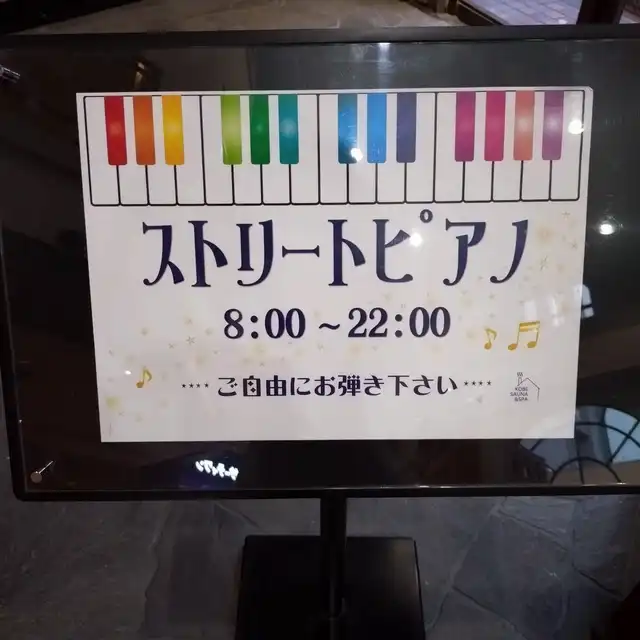 ストリートピアノ
8:00～22:00
**** ご自由にお弾き下さい ****
KOBE
SAUNA
&SPA